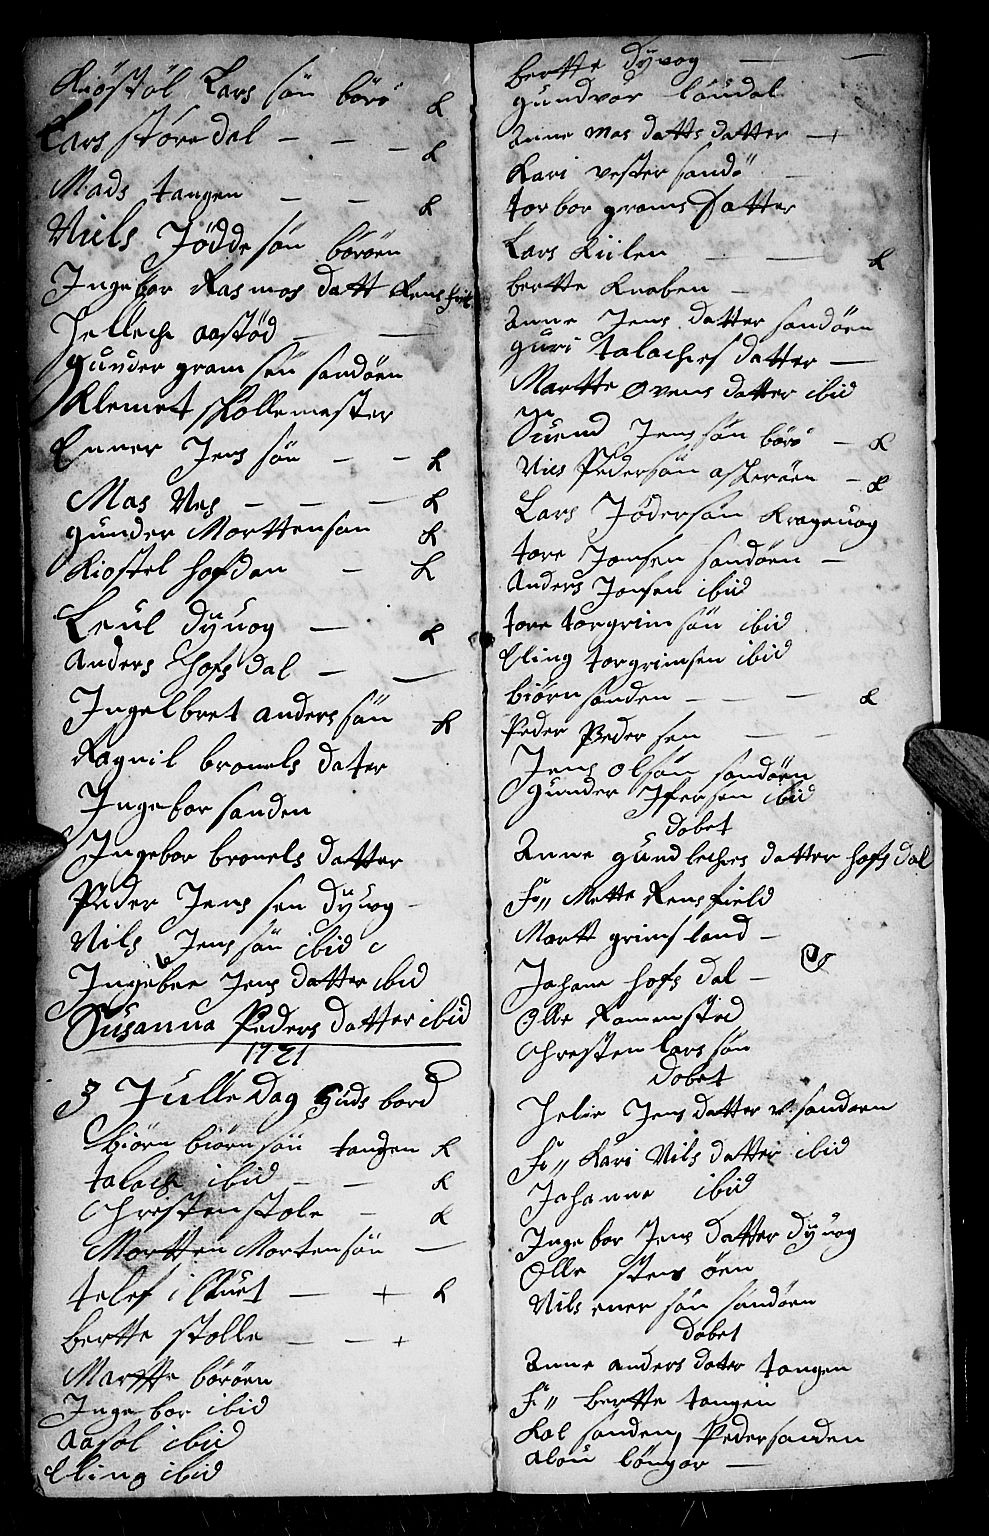 Kiöstöl Lars sön börö k
Lars störedal — — — k
Mads tangen — — k
Niels Jödde sön böröen
Ingebor Rasmos datt
Hellech aastöd — —
gunder gram sön sandöen
Klemet skollemester
Enner Jens sön — — k
Mas Nes — — — k
gunder Morttensøn k
Kiostel hofdan — k
Leul dÿuog — k
Anders hofs dal — —
Ingelbret anders sön k
Ragnil bronels dater
Ingebor sanden
Ingebor bronels datter
Peder Jens sen dÿuog
Nils Jens sön ibid
Ingebor Jens datter ibid
Susanna Peders datter ibid
1721
3 Julle Dag Guds bord
biörn biörn sön tangen k
talach ibid — — k
Christen stole — k
Mortten Mortensön —
telef i — + k
bertte stolle — — +
Martte böröen
Ingebor ibid
Aasol ibid
Elling ibid
bertte dyvog — —
gundvor löudal
Anne mas datts datter — +
Kari vester sandö
torbor grams datter
Lars Kiilen — — k
bertte Knoben —
Anne Jens datter sandöen
guri talaches datter —
Martte ovens datter ibid
Suend Jens sön börö — k
Nies Pedersön askeröen — k
Lars Jödersön Krageuog
tore Jonsen sandöen —
Anders Jonsen ibid
tore torgrim sön ibid
Elling torgrimsen ibid
biörn sanden — — k
Peder Peder sen — —
Jens olsön sandöen
gunder Ifersen ibid
döbet
Anne gundleches datter hofs dal
F„ Mette Rensfield
Martt grimsland —
Johane hofs dal —
Olle Ramensted
Christen Lars sön
döbet
Helie Jens datter v. sandöen
F„ Kari Nils datter ibid
Johanne ibid
Ingebor Jens datter dyuog
Olle stens öen
Nils ener sön sandöen
döbet
Anne anders dater tangen
F„ bertte tangen
Kal sanden, Peder sanden